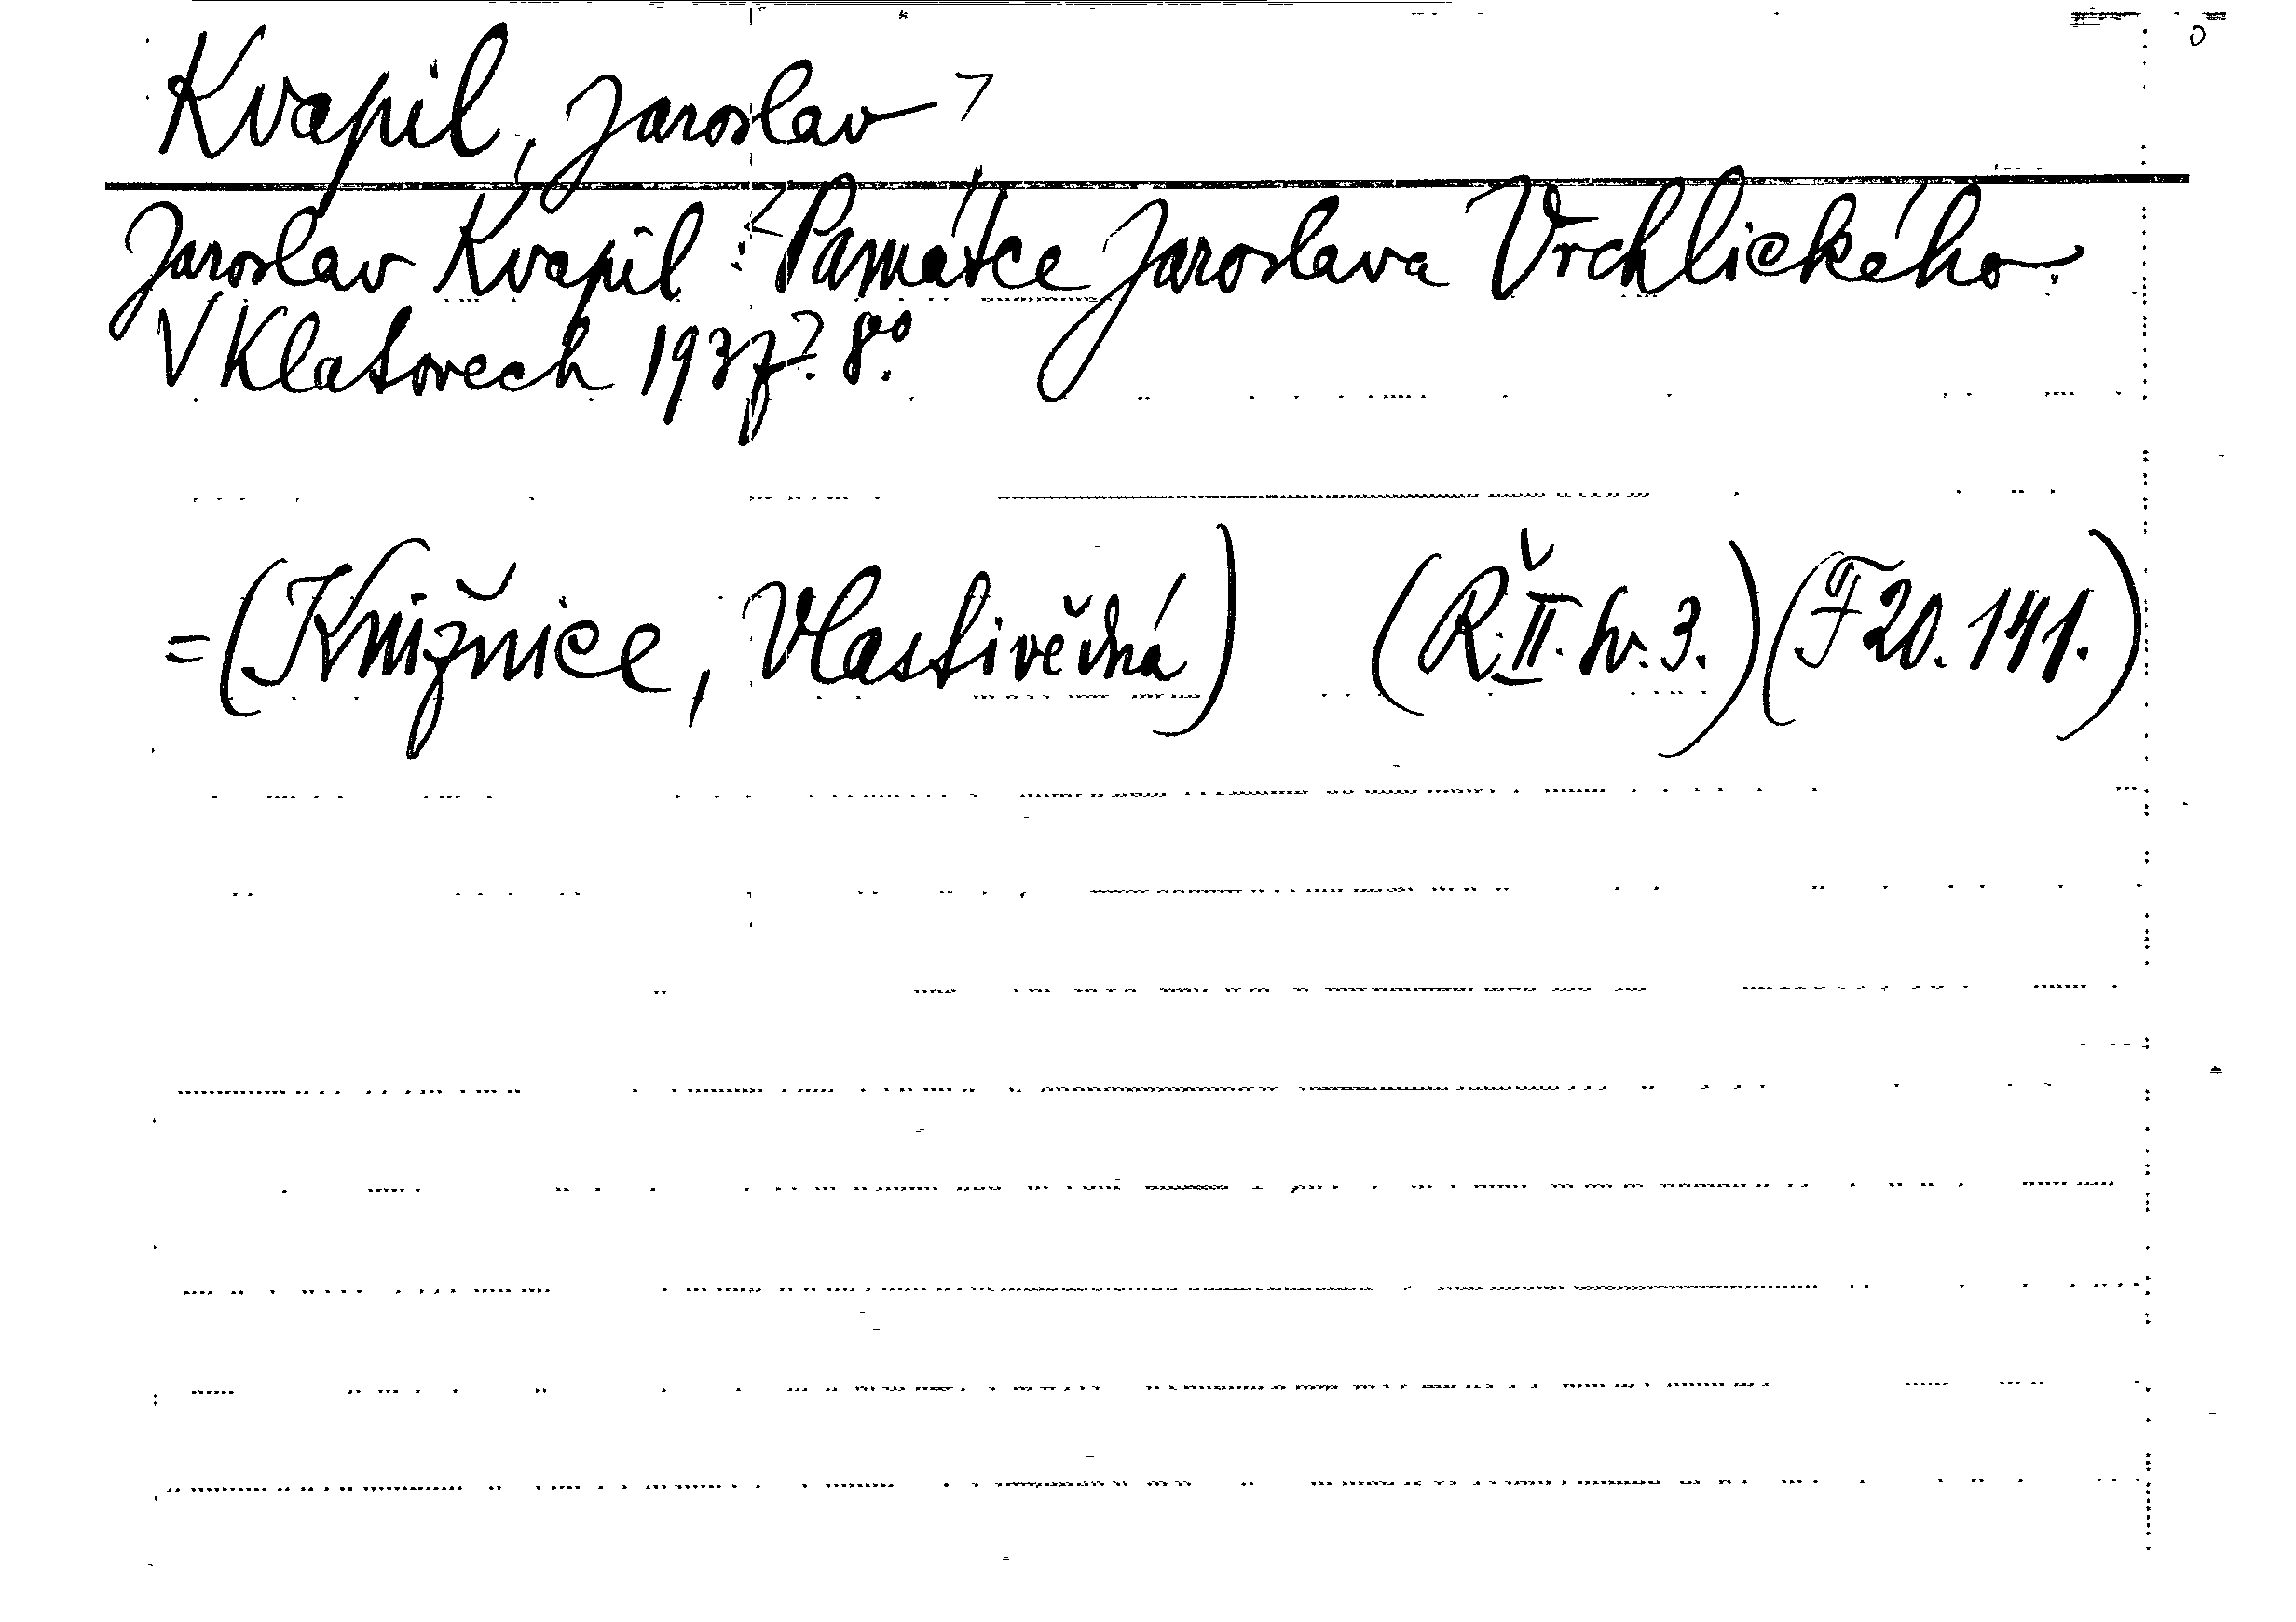 Kvapil, Jaroslav
Jaroslav Kvapil : Památce Jaroslava Vrchlického.
V Klatovech 193?. 8°.
= (Knižnice, Vlastivědná) (Ř. II. sv. 3.) (F 20. 141.)